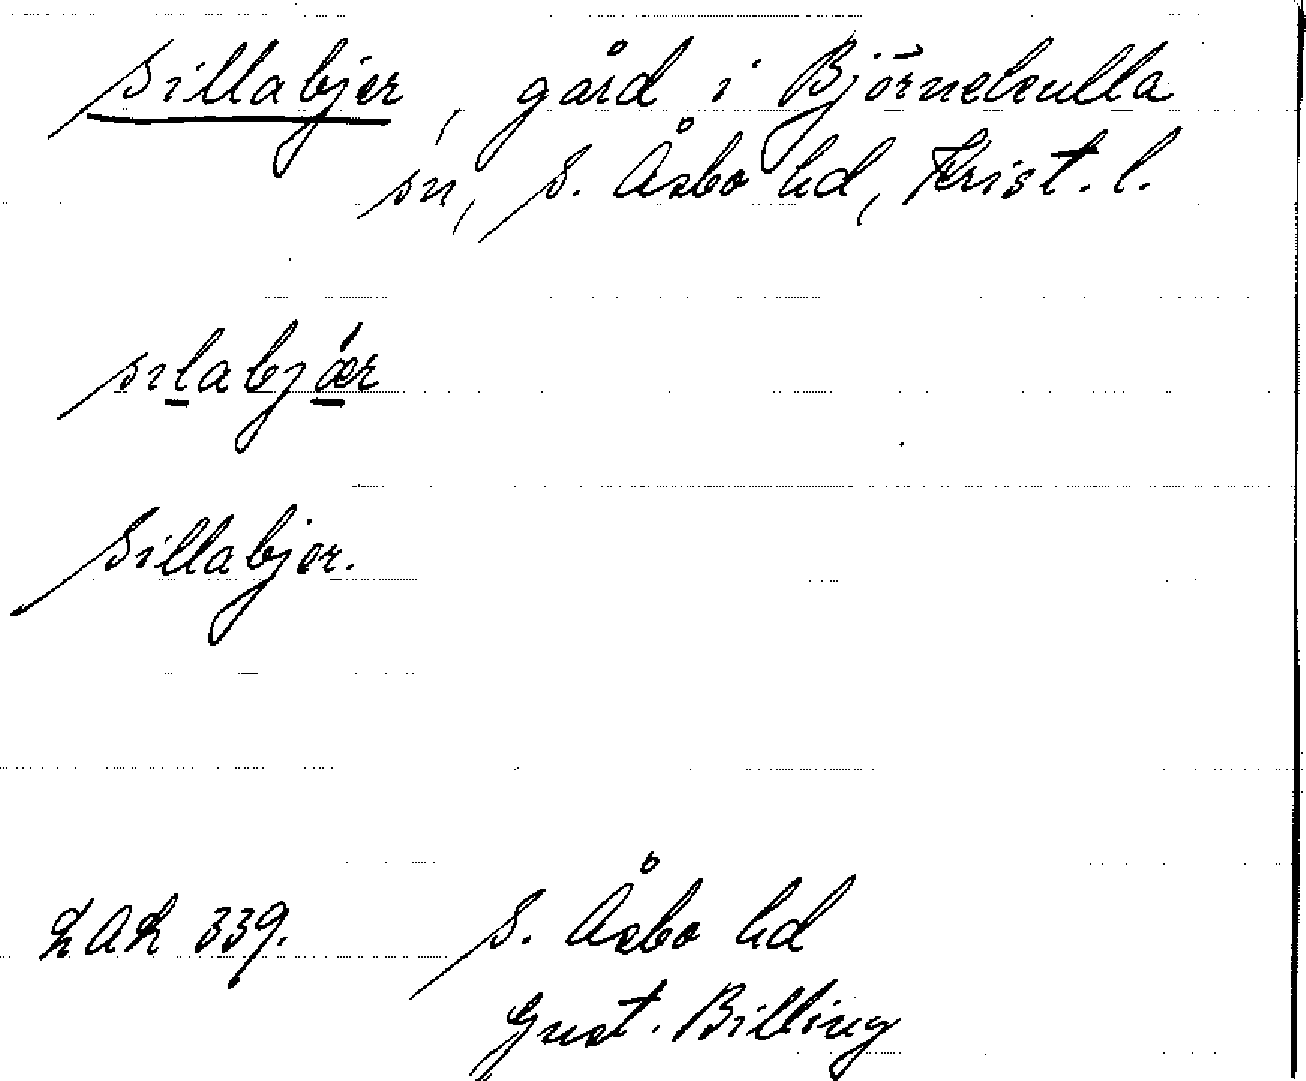 Sillabjer, gård i Björnekulla
sn, S. Åsbo hd, Krist. l.
sılabjǽr
Sillabjer.
LAL 339.
S. Åsbo hd
Gust. Billing